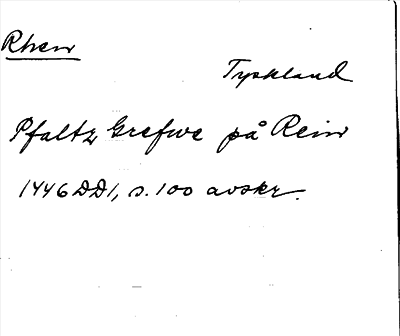 Rhen
Tyskland
Pfaltz Grefwe på Rein
1446 DD1, s. 100 avskr.